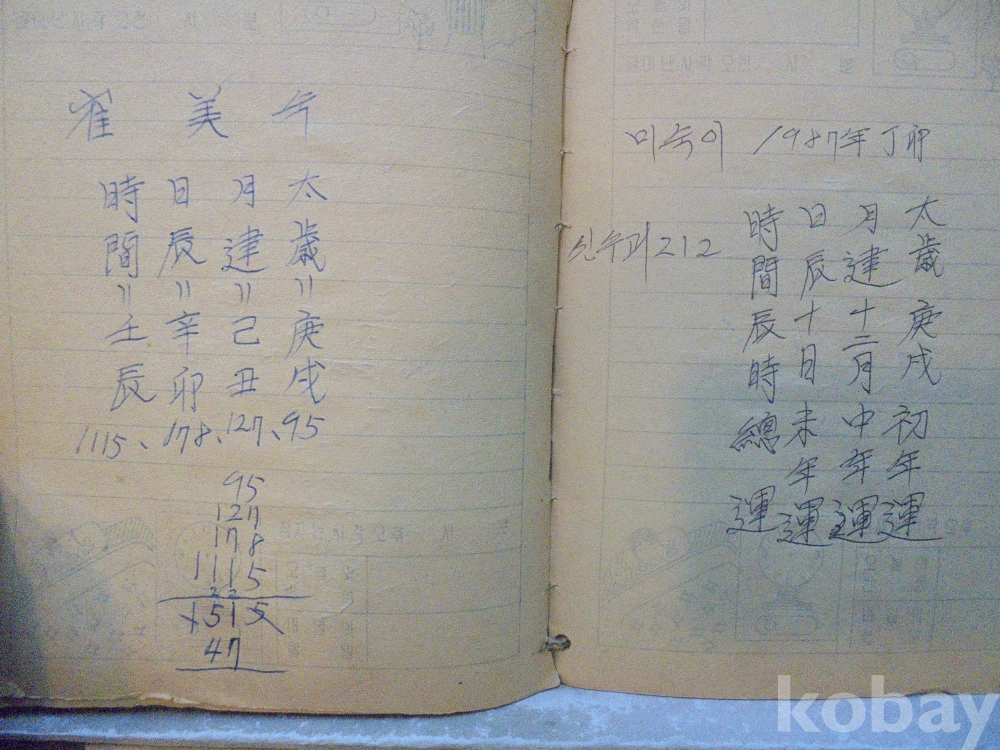 崔 美
太歲=庚戌
月建=己丑
日辰=辛卯
時間=壬辰
1115、178、127、95
95
127
178
1115
22
1515
47
미숙이 1987年 丁卯
신수괘 212
太歲 庚戌 初年運
月建 十二月 中年運
日辰 十日 末年運
時間 辰時 總運
kobay